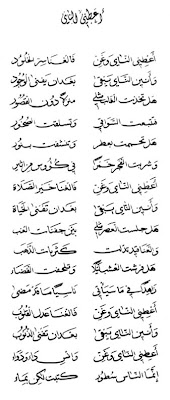 أعطني الناي
أعطني الناي وغن فالغنا سر الخلود
وأنين الناي يبقى بعد أن يفنى الوجود
هل تخذت الغاب مثلي منزلاً دون القصور
فتتبعت السواقي وتسلقت الصخور
هل تحممت بعطر وتنشفت بنور
وشربت الفجر خمراً في كؤوس من أثير
أعطني الناي وغن فالغنا خير الصلاة
وأنين الناي يبقى بعد أن تفنى الحياة
هل جلست العصر مثلي بين جفنات العنب
والعناقيد تدلت كثريات الذهب
هل فرشت العشب ليلاً وتلحفت الفضاء
زاهداً في ما سيأتي ناسياً ما قد مضى
أعطني الناي وغن فالغنا عدل القلوب
وأنين الناي يبقى بعد أن تفنى الذنوب
أعطني الناي وغن وانس داء ودواء
إنما الناس سطور كتبت لكن بماء